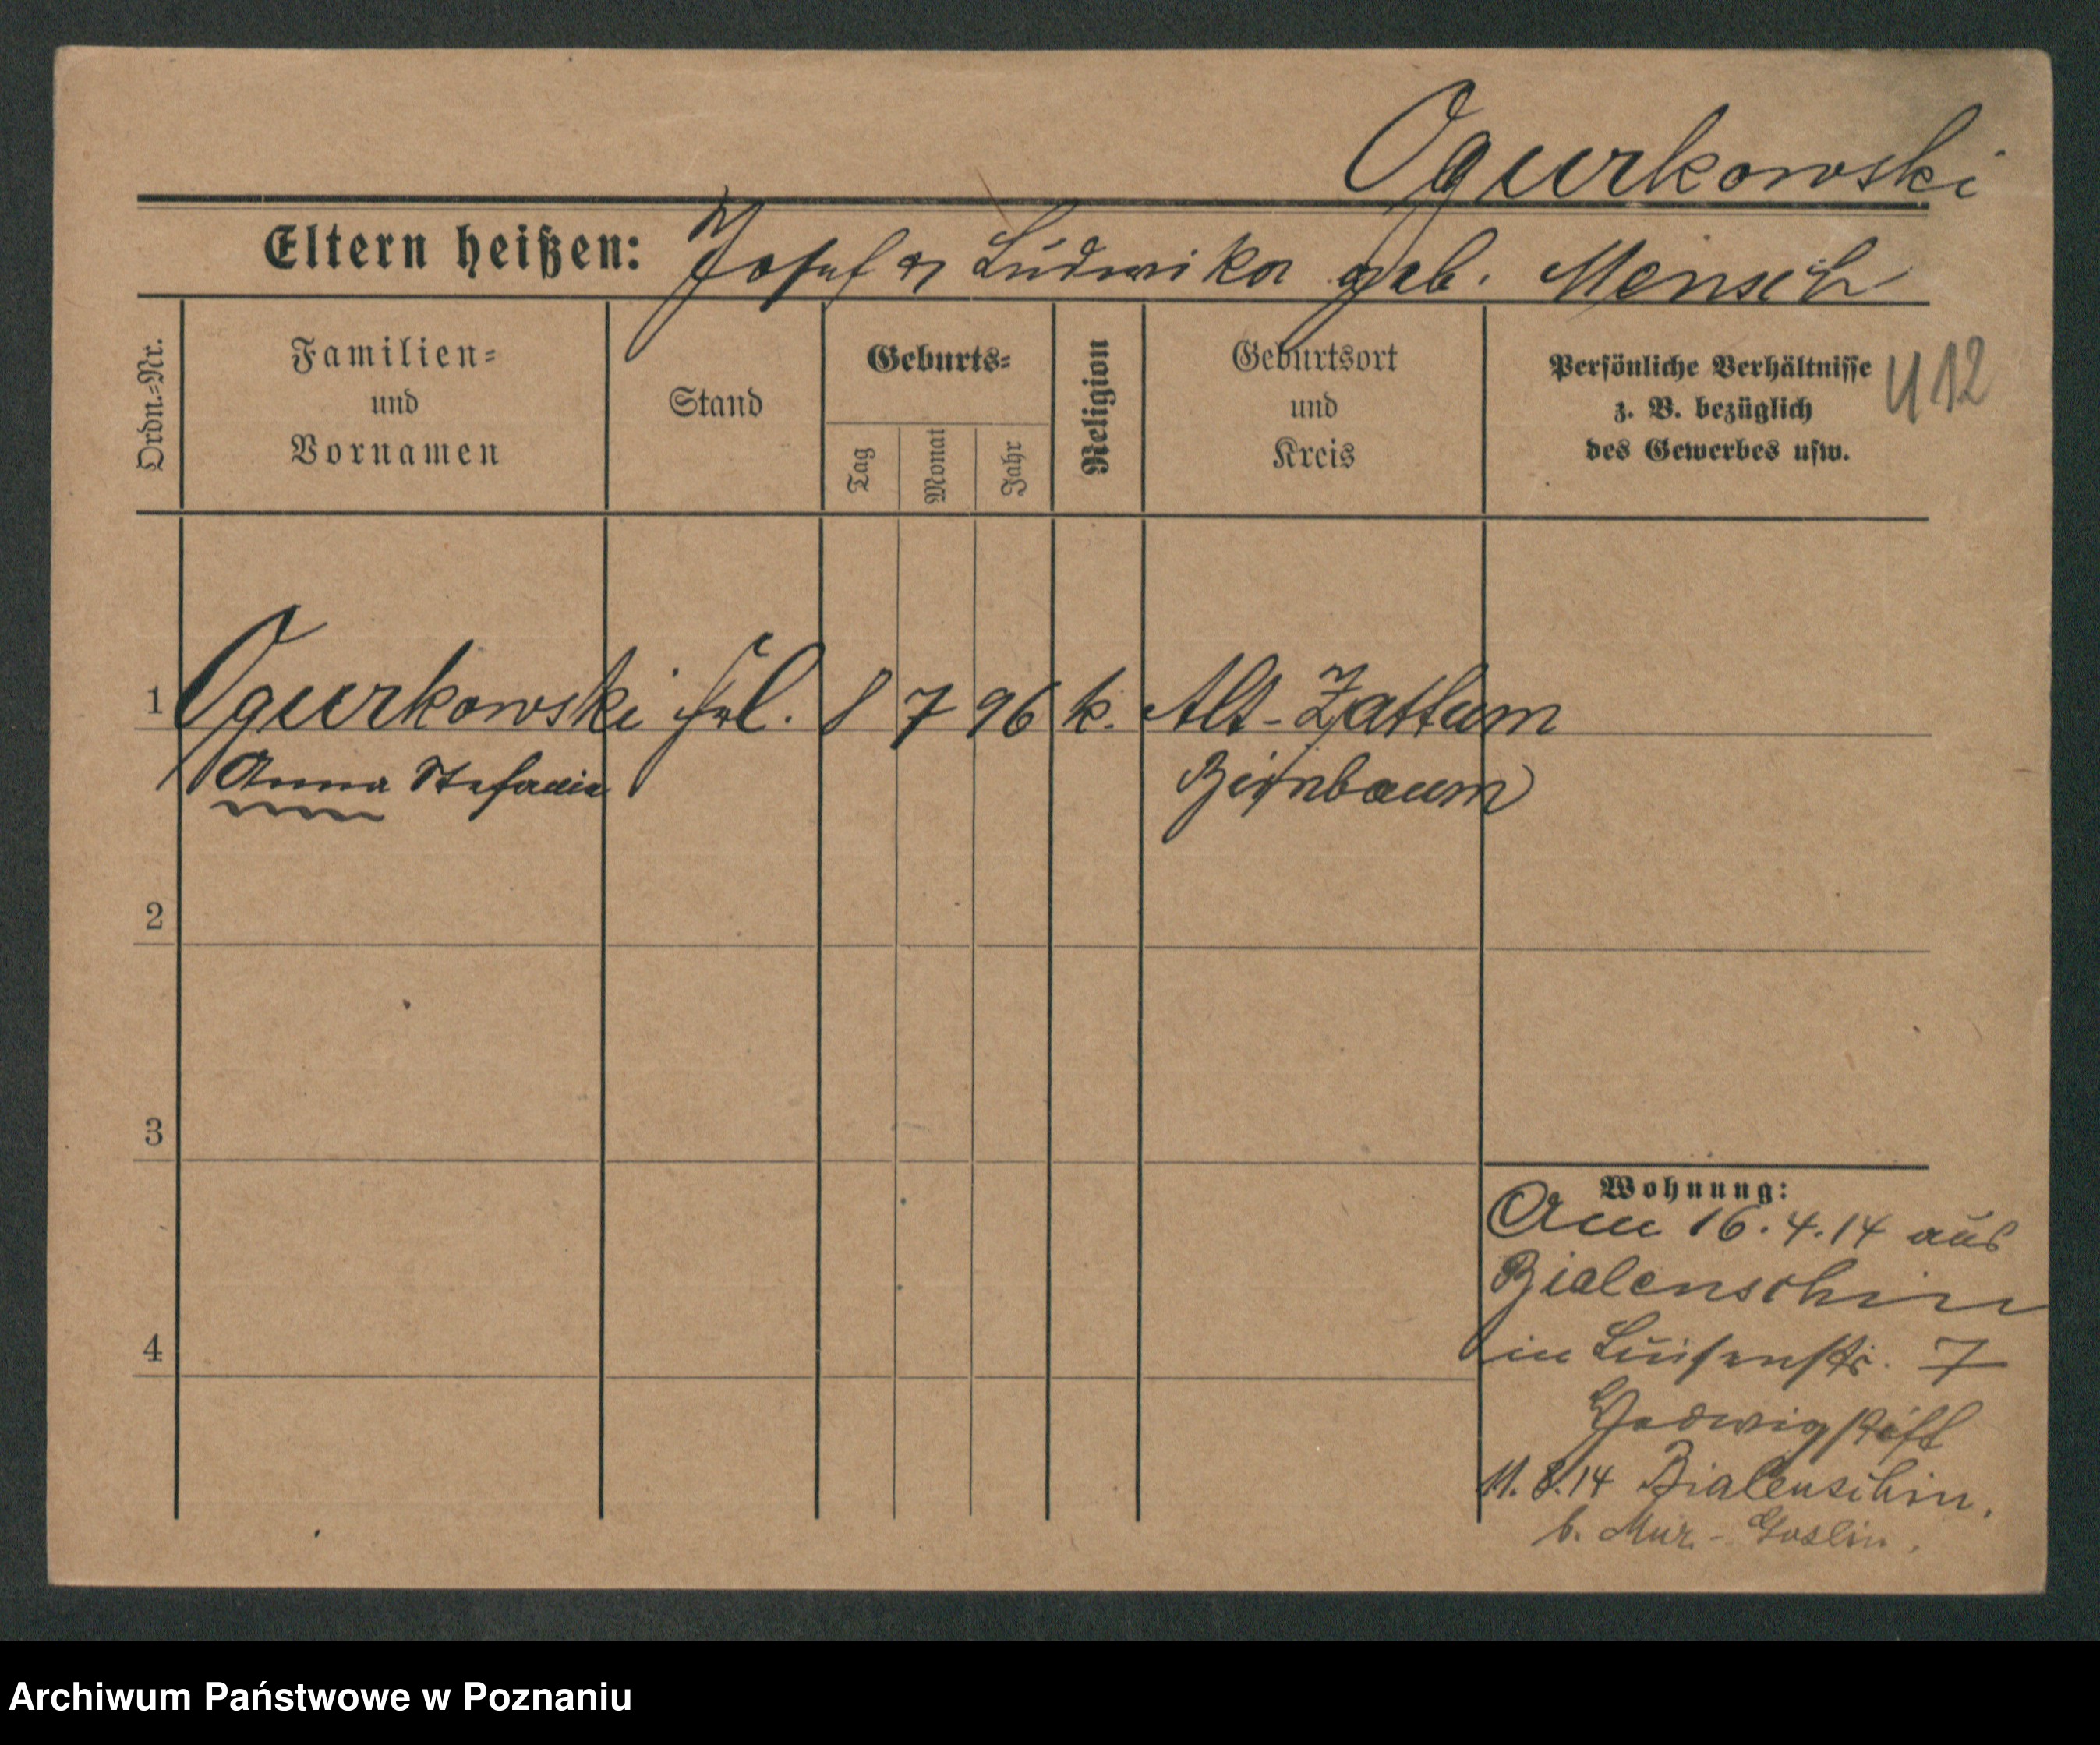 Ogurkowski
Eltern heißen: Josef u Ludwika geb. Mensch
Ordn.-Nr.
Familien-
und
Vornamen
Stand
Geburts-
Tag
Monat
Jahr
Religion
Geburtsort
und
Kreis
Persönliche Verhältnisse
z. B. bezüglich
des Gewerbes usw.
412
1 Ogurkowski frl. 8 7 96 k. Alt-Zattum
Anna Stefania Birnbaum
2
3
4
Wohnung:
Am 16.4.14 aus
Bialenschin
in Luisenstr. 7
Hedwigstift
11.8.14 Bialenschin.
b. Mur.-Goslin.
Archiwum Państwowe w Poznaniu